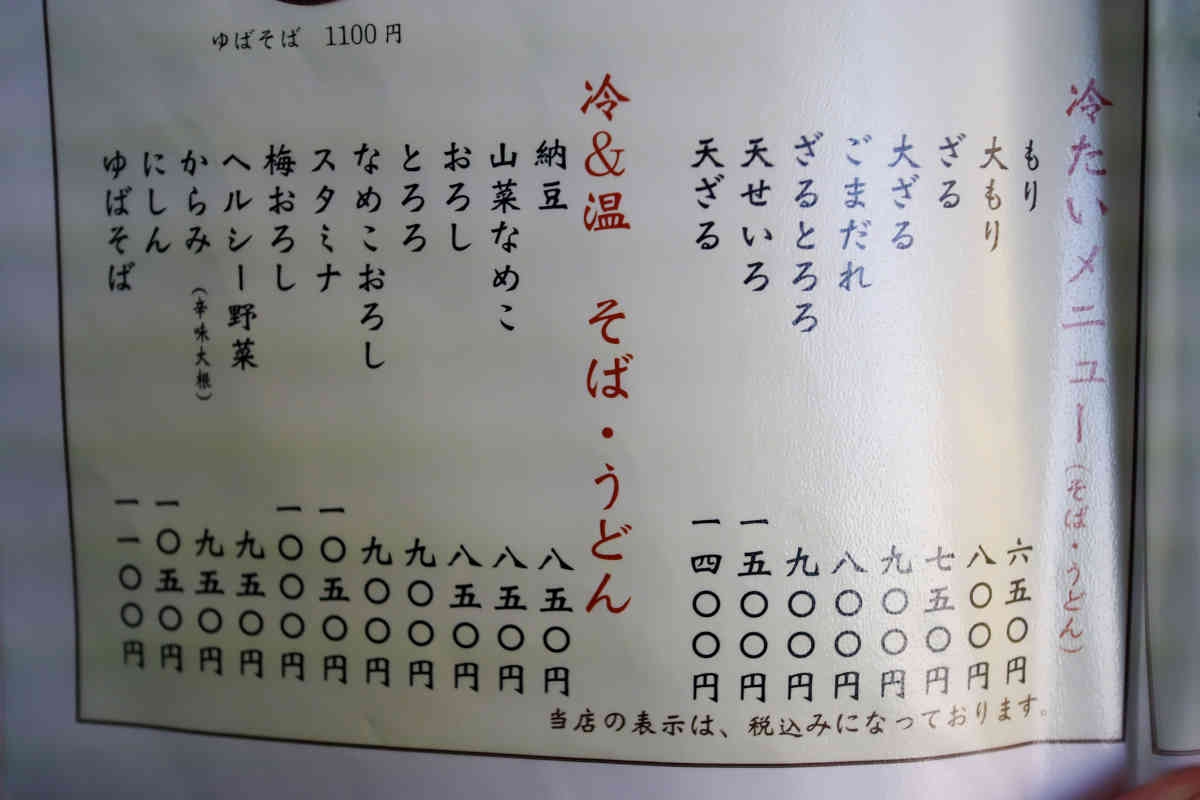 ゆばそば 1100円
冷たいメニュー(そば・うどん)
もり 六五〇円
大もり 八〇〇円
ざる 七五〇円
大ざる 九〇〇円
ごまだれ 八〇〇円
ざるとろろ 九〇〇円
天せいろ 一五〇〇円
天ざる 一四〇〇円
冷&温 そば・うどん
納豆 八五〇円
山菜なめこ 八五〇円
おろし 八五〇円
とろろ 九〇〇円
なめこおろし 九〇〇円
スタミナ 一〇五〇円
梅おろし 一〇〇〇円
ヘルシー野菜 九五〇円
からみ(辛味大根) 九五〇円
にしん 一〇五〇円
ゆばそば 一一〇〇円
当店の表示は、税込みになっております。